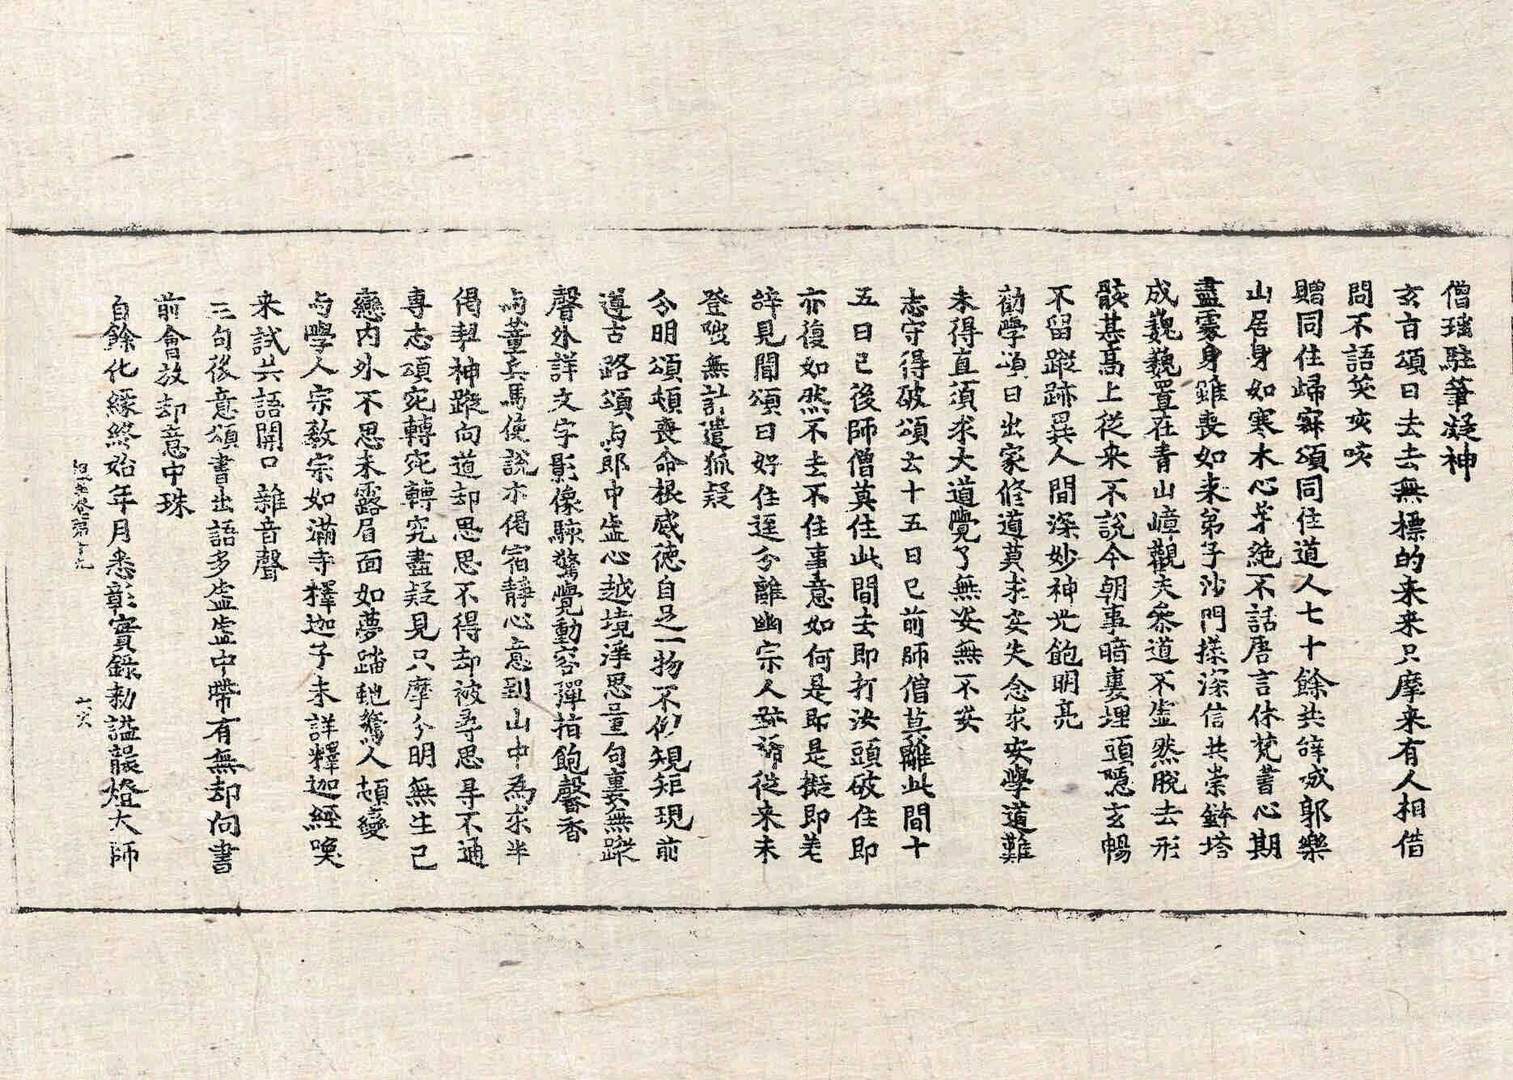 僧瑤駐筆凝神
玄旨頌曰去去無標的来来只摩来有人相借
問不語笑咳咳
贈同住歸寂頌同住道人七十餘共辞城郭樂
山居身如寒木心芽絶不話唐言休梵書心期
盡處身雖喪如来弟子沙門樣深信共崇鉢塔
成巍巍置在青山嶂觀夫参道不虚然脱去形
骸甚髙上従来不說今朝事暗裏埋頭隱玄暢
不留蹤跡異人間深妙神光飽明亮
勸學頌曰出家修道莫求安失念求安學道難
未得直須求大道覺了無安無不安
志守得破頌云十五日已前師僧莫離此間十
五日已後師僧莫住此間去即打汝頭破住即
亦復如然不去不住事意如何是即是擬即差
辞見聞頌曰好住逕分離幽宗人 従来未
登咄無計遣狐疑
分明頌頓喪命根感徳自足一物不 規矩現前
遵古路頌与郎中虚心越境淨思量句裏無蹤
聲外詳文字影像駭驚覺動容彈拍飽馨香
与董兵馬使說示偈宿靜心意到山中為求半
偈契神蹤向道却思思不得却被尋思尋不通
専志頌宛轉宛轉究盡疑見只摩分明無生已
戀内外不思未露眉面如夢踏虵驚人頓變
与學人宗致宗如滿寺釋迦子未詳釋迦經喚
来試共語開口雜音聲
三句後意頌書出語多虚虚中帶有無却向書
前會放却意中珠
自餘化緣終始年月悉彰實錄勅諡襲燈大師